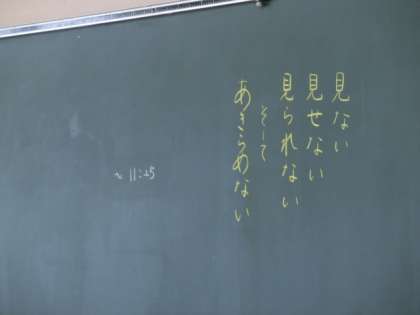 見ない
見せない
見られない
そして
あきらめない
~ 11:45